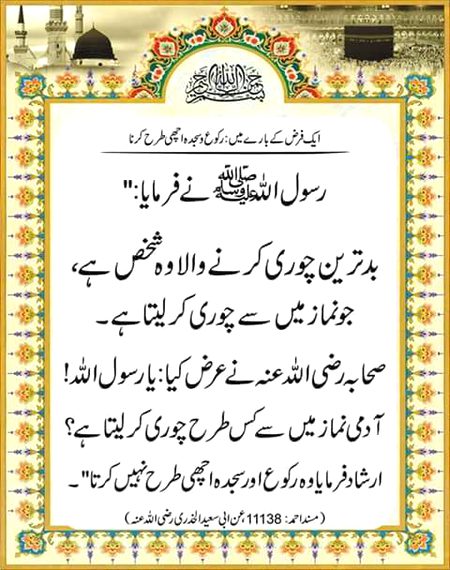 بسم الله الرحمن الرحيم
ایک فرض کے بارے میں: رکوع و سجدہ اچھی طرح کرنا
رسول اللہ ﷺ نے فرمایا: "
بدترین چوری کرنے والا وہ شخص ہے،
جو نماز میں سے چوری کر لیتا ہے۔
صحابہ رضی اللہ عنہ نے عرض کیا: یا رسول اللہ!
آدمی نماز میں سے کس طرح چوری کر لیتا ہے؟
ارشاد فرمایا وہ رکوع اور سجدہ اچھی طرح نہیں کرتا"۔
(مسند احمد: 11138، عن ابی سعید الخدری رضی اللہ عنہ)